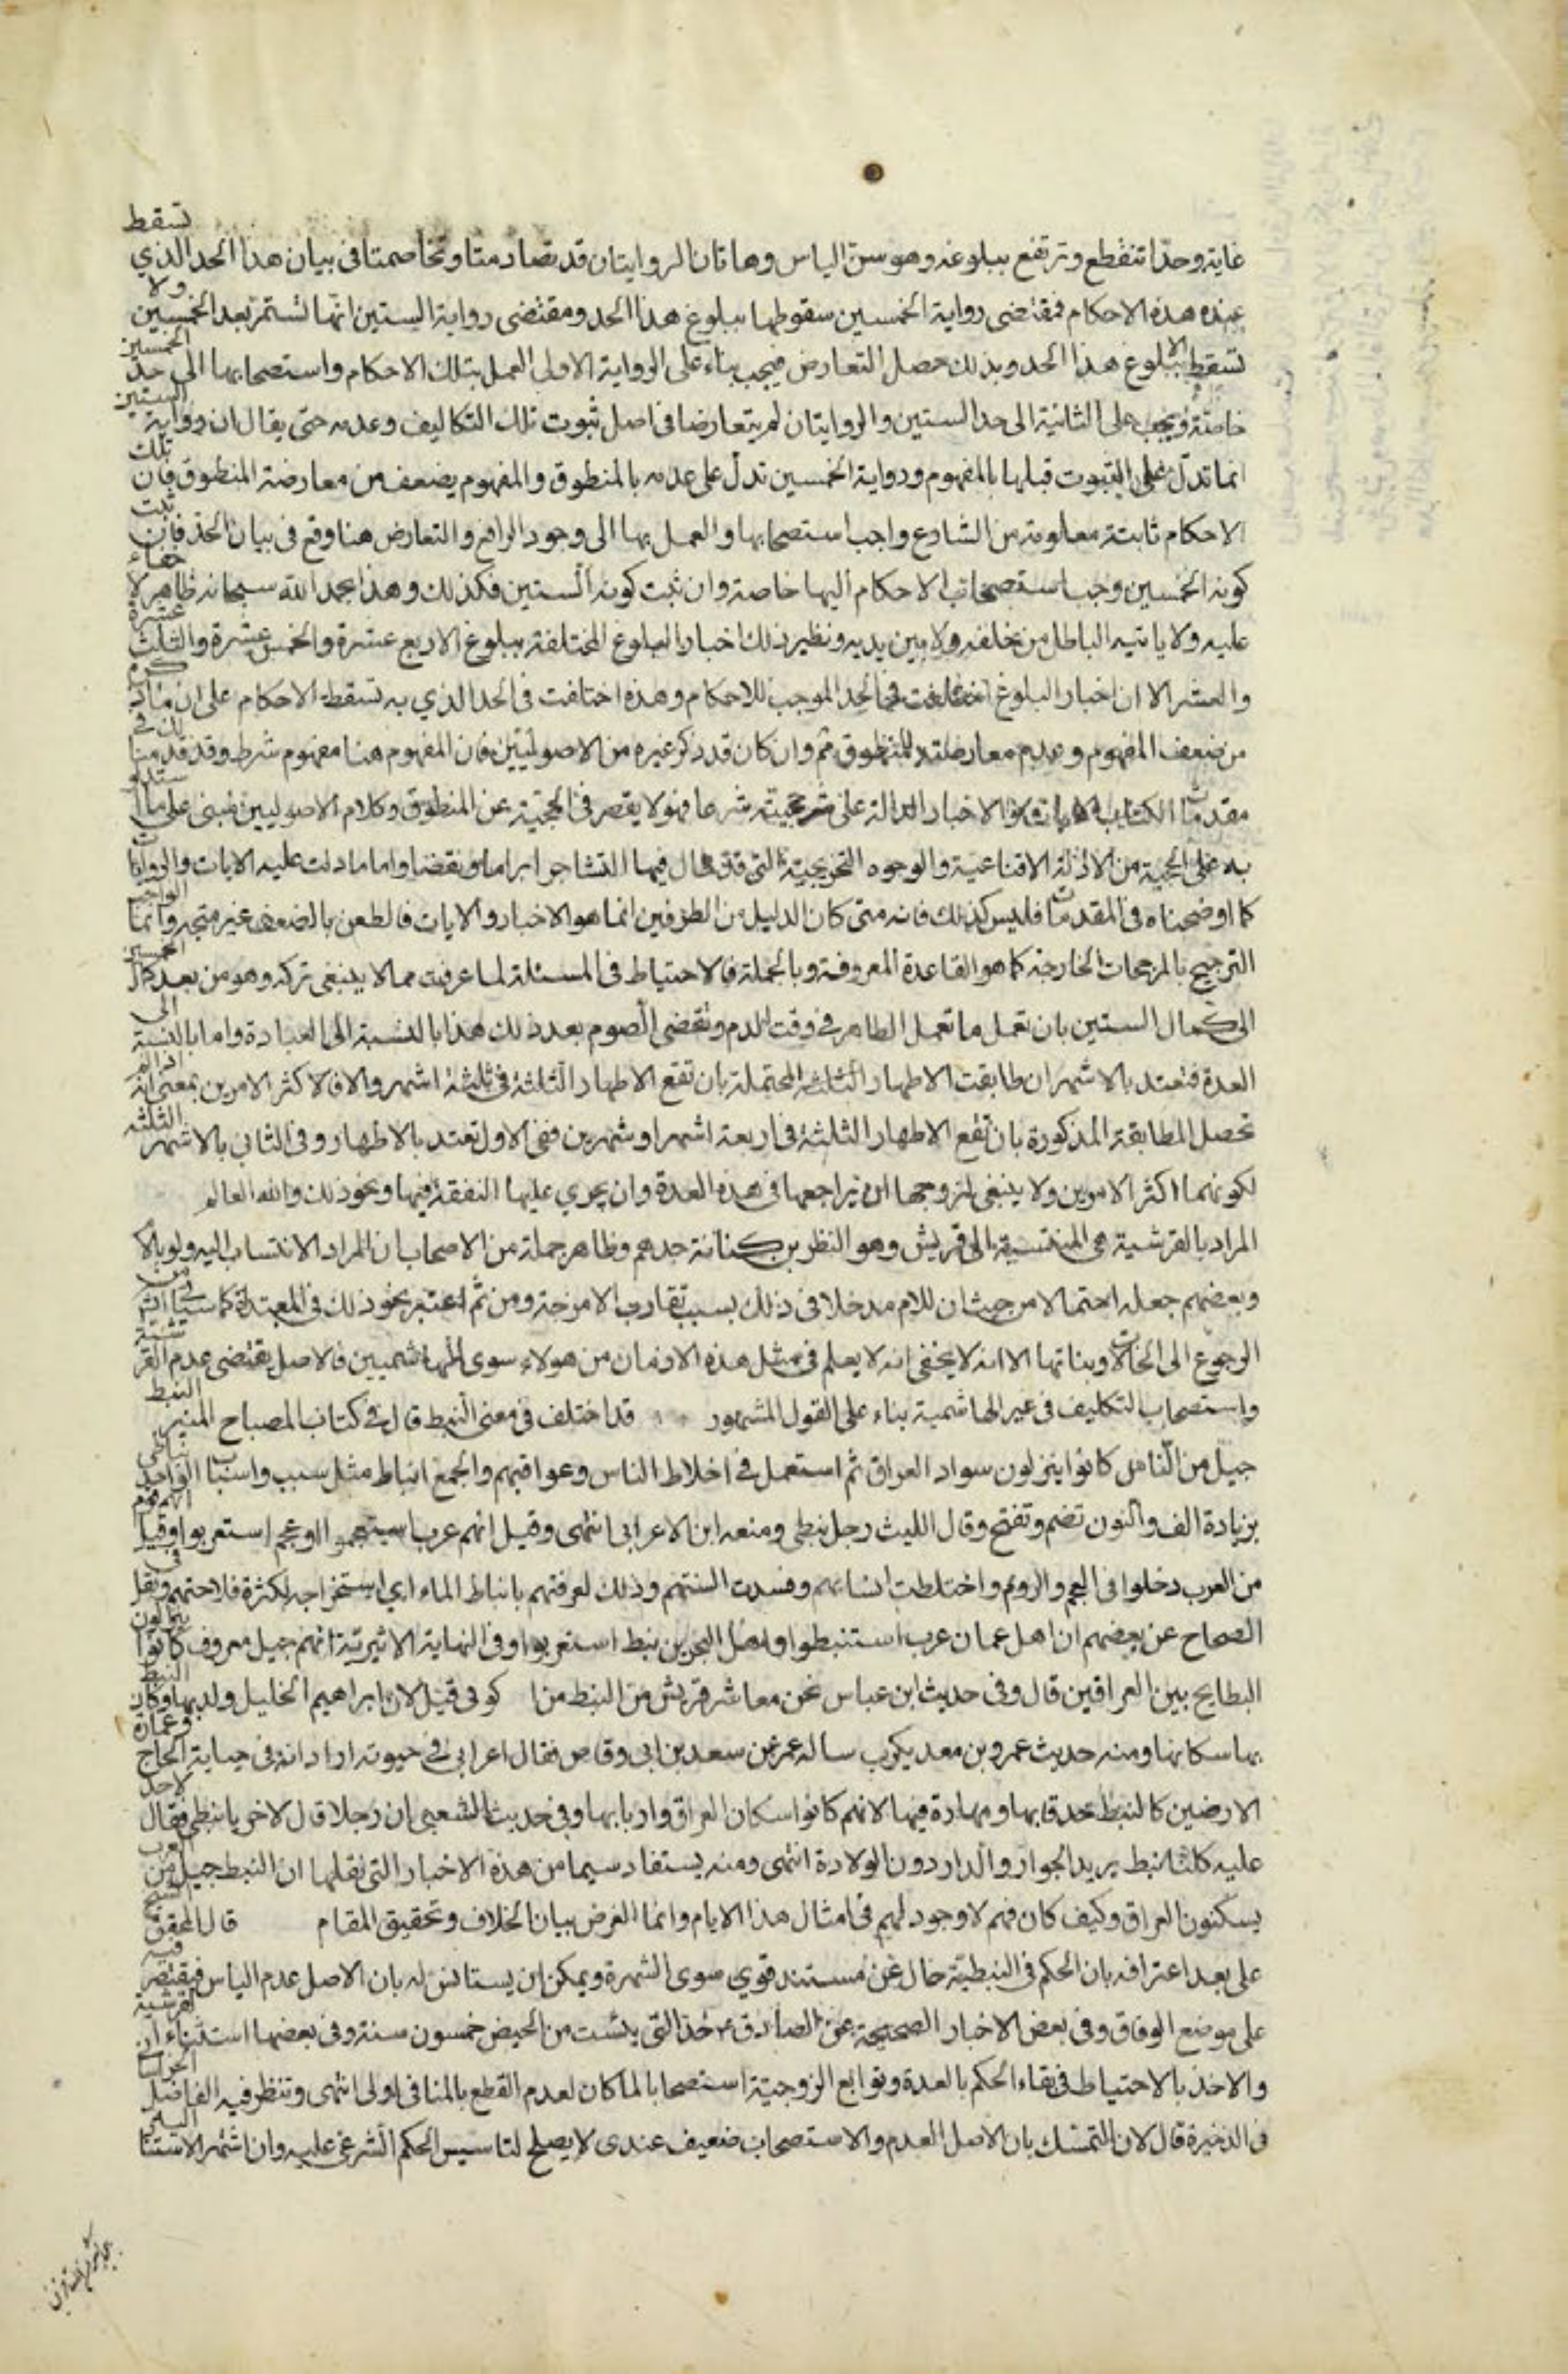 غاية وحدا تنقطع وترتفع ببلوغه وهو سن الياس وهاتان الروايتان قد تصادمتا وتخاصمتا فى بيان هذا الحد الذي تسقط
عنده هذه الاحكام فمقتضى رواية الخمسين سقوطها ببلوغ هذا الحد ومقتضى رواية الستين انها تستمر بعد الخمسين ولا
تسقط الا ببلوغ هذا الحد وبذلك حصل التعارض فيجب بناء على الرواية الاولى العمل بتلك الاحكام واستصحابها الى حد الخمسين
خاصة ويجب على الثانية الى حد الستين والروايتان لم يتعارضا فى اصل ثبوت تلك التكاليف وعدمه حتى يقال ان رواية الستين
انما تدل على الثبوت قبلها بالمفهوم ورواية الخمسين تدل على عدمه بالمنطوق والمفهوم يضعف من معارضة المنطوق فان تلك
الاحكام ثابتة معلومة من الشارع واجب استصحابها والعمل بها الى وجود الرافع والتعارض هنا وقع فى بيان الحد فان ثبت
كونه الخمسين وجب استصحاب الاحكام اليها خاصة وان ثبت كونه الستين فكذلك وهذا بحمد الله سبحانه ظاهر لا خفاء
عليه ولا ياتيه الباطل من خلفه ولا بين يديه ونظير ذلك اخبار البلوغ المختلفة ببلوغ الاربع عشرة والخمس عشرة والثلث عشرة
والعشر الا ان اخبار البلوغ اختلفت فى الحد الموجب للاحكام وهذه اختلفت فى الحد الذي به تسقط الاحكام على ان ما ذكره
من ضعف المفهوم وعدم معارضته للمنطوق ثم وان كان قد ذكر غيره من الاصوليين فان المفهوم هنا مفهوم شرط وقد قدمنا لك فى
مقدمات الكتاب الايات والاخبار الدالة على حجيته شرعا فهو لا يقصر فى الحجية عن المنطوق وكلام الاصوليين مبنى على ما استدلوا
به على الحجية من الادلة الاقتناعية والوجوه التخريجية التى قد طال فيها التشاجر ابراما ونقضا واما ما دلت عليه الايات والروايات
كما اوضحناه فى المقدمات فليس كذلك فانه متى كان الدليل من الطرفين انما هو الاخبار والايات فالطعن بالضعف غير متجه وانما الواجب
الترجيح بالمرجحات الخارجة كما هو القاعدة المعروفة وبالجملة فالاحتياط فى المسئلة لما عرفت مما لا ينبغى تركه وهو من بعد كمال الخمسين
الى كمال الستين بان تعمل ما تعمل الطاهر فى وقت الدم وتقضى الصوم بعد ذلك هذا بالنسبة الى العبادة واما بالنسبة الى
العدة فتعتد بالاشهر ان طابقت الاطهار الثلثة المحتملة بان تقع الاطهار الثلثة فى ثلثة اشهر والا فلاكثر الامرين بمعنى انه اذا لم
تحصل المطابقة المذكورة بان تقع الاطهار الثلثة فى اربعة اشهر او شهرين ففى الاول تعتد بالاطهار وفى الثانى بالاشهر الثلثة
لكونهما اكثر الامرين ولا ينبغى لزوجها ان يراجعها فى هذه العدة وان يجري عليها النفقة فيها ونحو ذلك والله العالم
المراد بالقرشية هى المنتسبة الى قريش وهو النظر بن كنانة جدهم وظاهر جملة من الاصحاب ان المراد الانتساب اليه ولو بالام
وبعضهم جعله احتمالا من حيث ان للام مدخلا فى ذلك بسبب تقارب الامزجة ومن ثم اعتبر نحو ذلك فى المبتدئة كما سياتى من
الرجوع الى الخالات وبناتها الا انه لا يخفى انه لا يعلم فى مثل هذه الازمان من هولاء سوى الهاشميين فالاصل يقتضى عدم القرشية
واستصحاب التكليف فى غير الهاشمية بناء على القول المشهور قد اختلف فى معنى النبط قال فى كتاب المصباح المنير النبط
جيل من الناس كانوا ينزلون سواد العراق ثم استعمل فى اخلاط الناس وعوامهم والجمع انباط مثل سبب واسباب الواحد نباطى
بزيادة الف والنون تضم وتفتح وقال الليث رجل نبطى ومنعه ابن الاعرابى انتهى وقيل انهم عرب استعجموا او عجم استعربوا وقيل انهم قوم
من العرب دخلوا فى العجم والروم واختلطت انسابهم وفسدت السنتهم وذلك لمعرفتهم بانباط الماء اي استخراجه لكثرة فلاحتهم ونقل فى
الصحاح عن بعضهم ان اهل عمان عرب استنبطوا واهل البحرين نبط استعربوا وفى النهاية الاثيرية انهم جيل معروف كانوا ينزلون
البطايح بين العراقين قال وفى حديث ابن عباس نحن معاشر قريش من النبط من كوثى قيل لان ابراهيم الخليل ولد بها وكان النبط
بها سكانها ومنه حديث عمرو بن معد يكرب ساله عمر عن سعد بن ابى وقاص فقال اعرابى فى حبوته اراد انه فى جباية الخراج وعمارة
الارضين كالنبط حذقا بها ومهارة فيها لانهم كانوا سكان العراق واربابها وفى حديث الشعبى ان رجلا قال لاخر يا نبطى فقال لا حد
عليه كلنا نبط يريد الجوار والدار دون الولادة انتهى ومنه يستفاد سيما من هذه الاخبار التى نقلها ان النبط جيل من العرب
يسكنون العراق وكيف كان فهم لا وجود لهم فى امثال هذا الايام وانما الغرض بيان الخلاف وتحقيق المقام قال المحقق الشيخ
على بعد اعترافه بان الحكم فى النبطية خال عن مستند قوي سوى الشهرة ويمكن ان يستانس له بان الاصل عدم الياس فيقتصر فيه
على موضع الوفاق وفى بعض الاخبار الصحيحة عن الصادق ع حد التى يئست من الحيض خمسون سنة وفى بعضها استثناء القرشية
والاخذ بالاحتياط فى بقاء الحكم بالعدة وتوابع الزوجية استصحابا لما كان لعدم القطع بالمنافى اولى انتهى وتنظر فيه الفاضل
فى الذخيرة قال لان التمسك بان الاصل العدم والاستصحاب ضعيف عندى لا يصلح لتاسيس الحكم الشرعى عليه وان اشتهر الاستناد